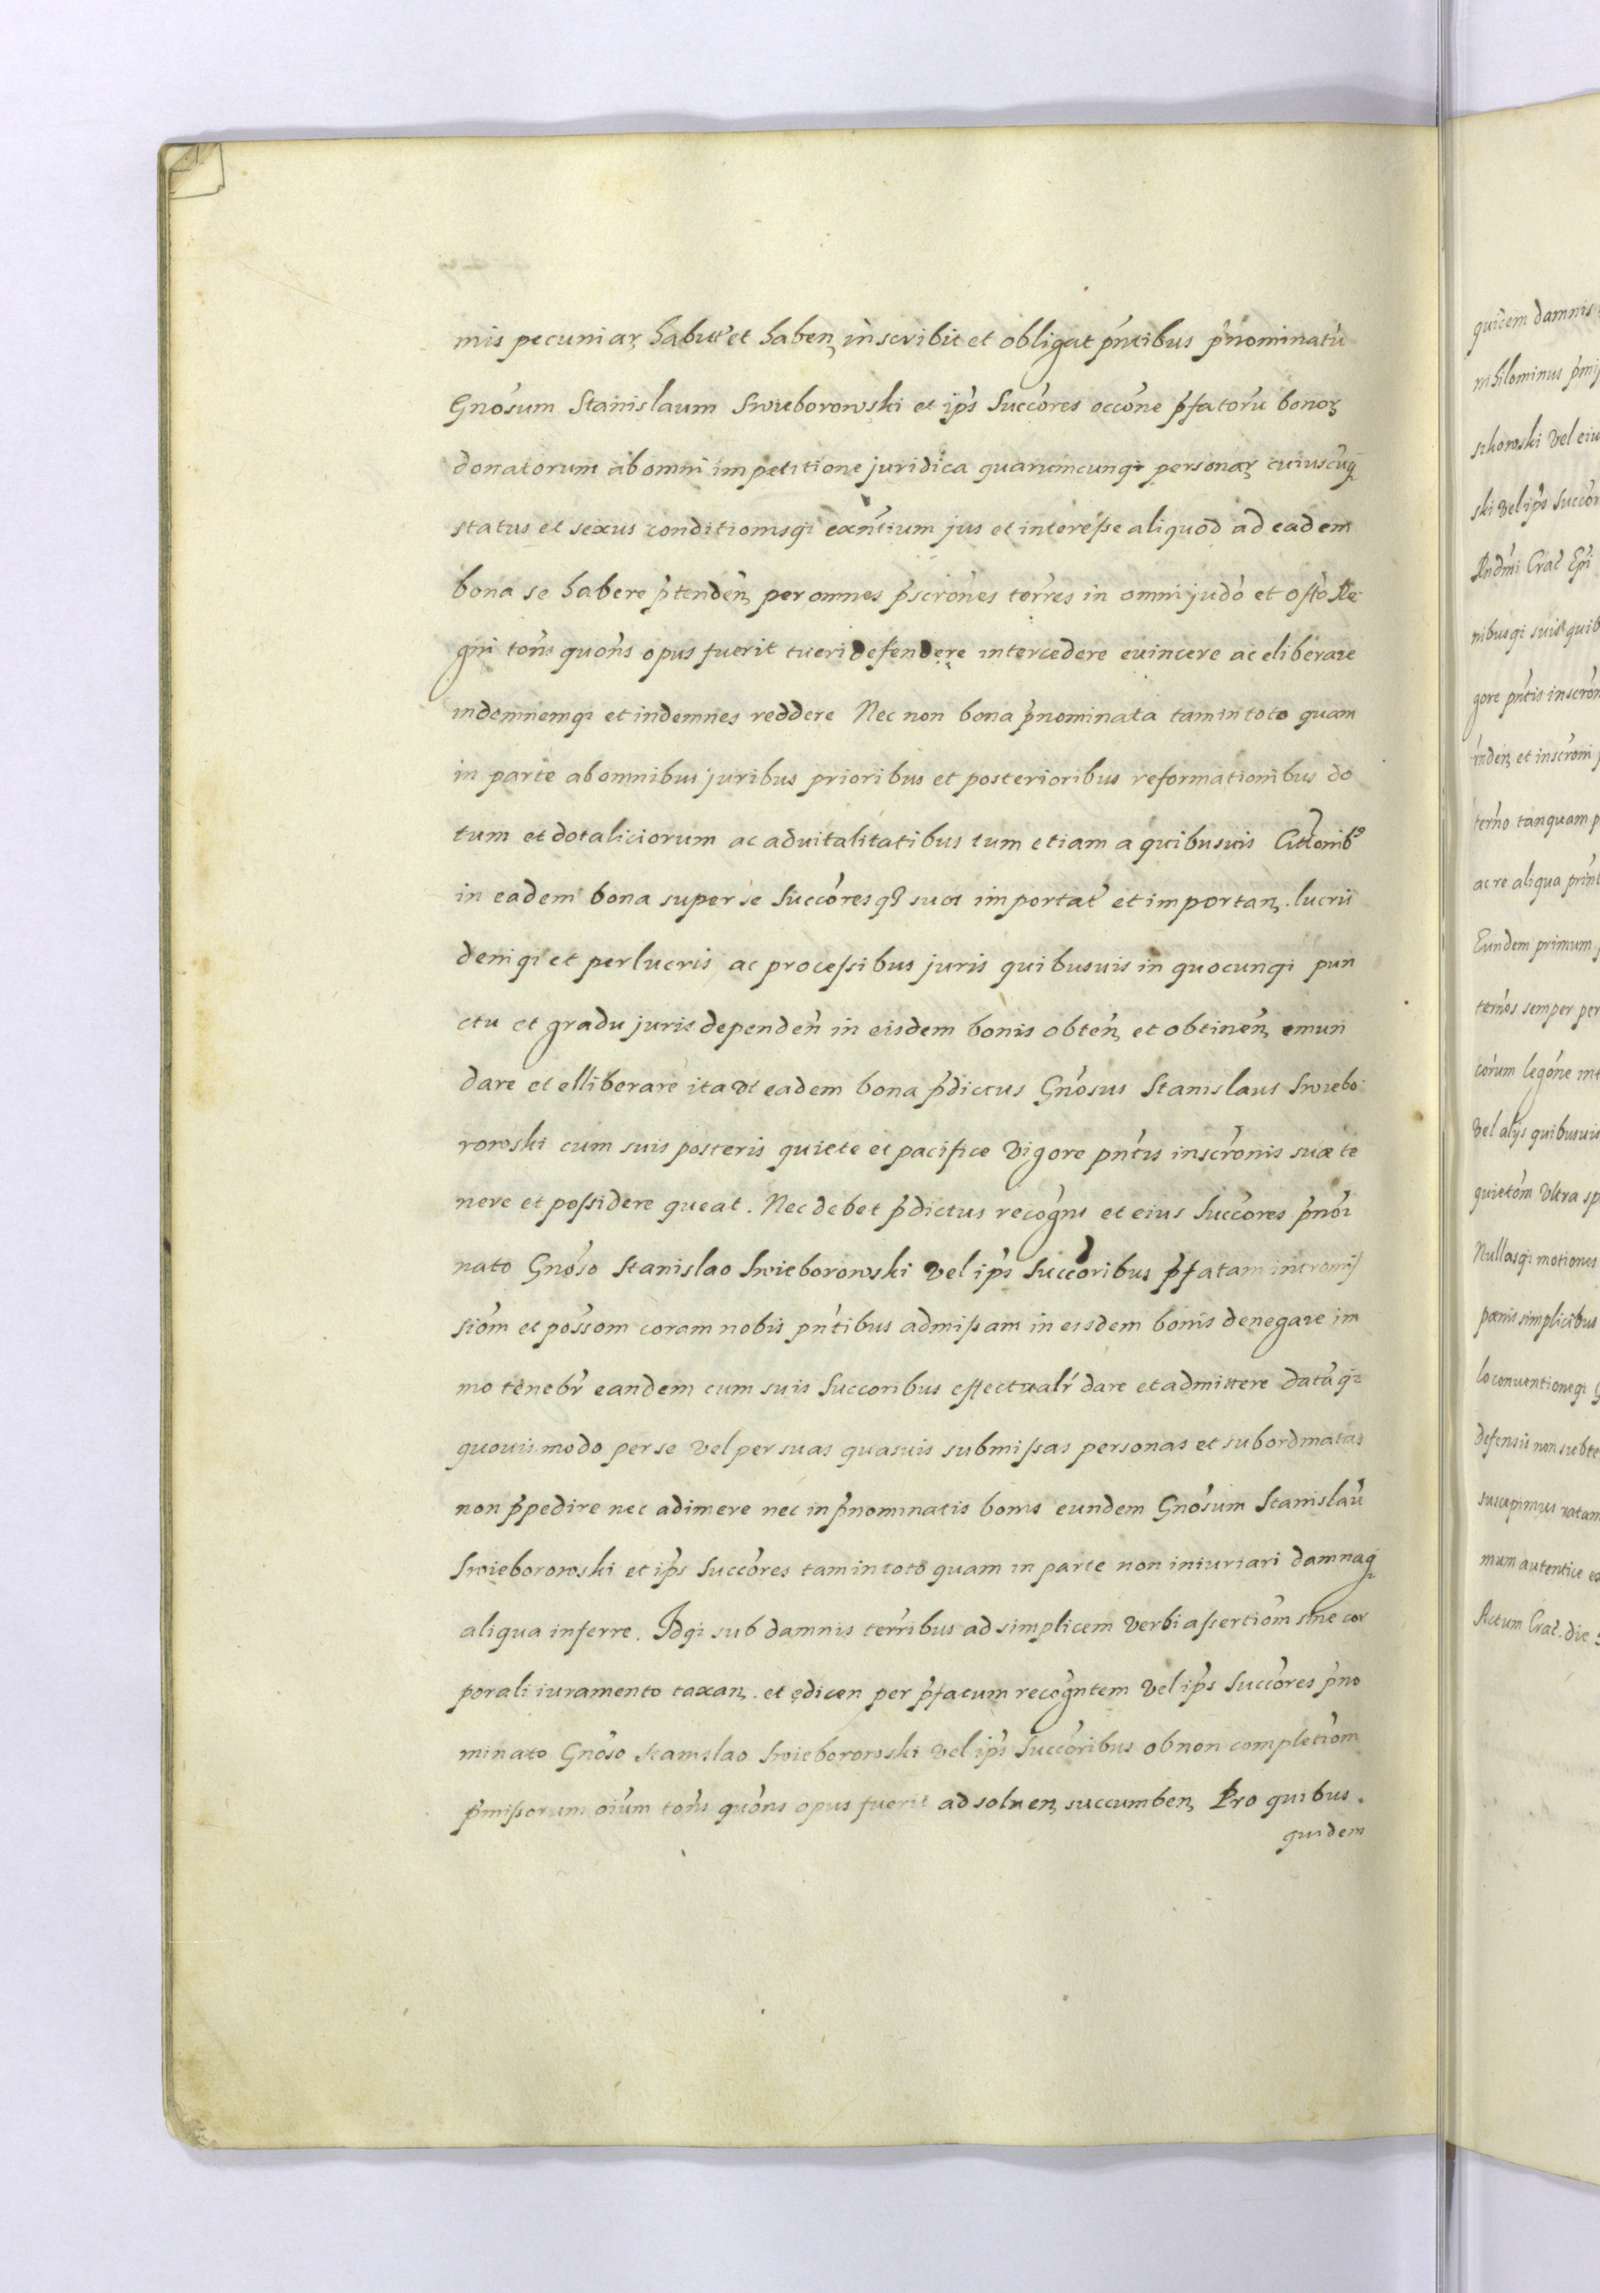 mis pecuniaꝝ habit̄ et habenꝫ inscribit et obligat pn̄tibus p̄nominatū
Gnōsum Stanislaum Swieborowski et ip̄s Succōres occōne p̄fatorū bonoꝝ
donatorum ab omni impetitione juridica quarumcunqꝫ personaꝝ cuiuscūqꝫ
status et sexus conditionisqꝫ exn̄tium jus et intereſse aliquod ad eadem
bona se habere p̄tendēn per omnes p̄scrōnes terr̄es in omni judō et offo Re
gni tōns quōns opus fuerit tueri defendere intercedere euincere ac eliberare
indemnemqꝫ et indemnes reddere Nec non bona p̄nominata tam in toto quam
in parte ab omnibus juribus prioribus et posterioribus reformationibus do
tum et dotaliciorum ac aduitalitatibus tum etiam a quibusuis
in eadem bona super se Succōresqꝫ suos importat̄ et importanꝫ. lucris
deniqꝫ et perlucris, ac proceſsibus juris quibusuis in quocunqꝫ pun
ctu et gradu juris dependen̄ in eisdem bonis obten̄ꝫ et obtinēnꝫ emun
dare et elliberare ita vt eadem bona p̄dictus Gnōsus Stanislaus Swiebo
rowski cum suis posteris quiete et pacifice vigore pn̄tis inscrōnis suæ te
nere et poſsidere queat. Nec debet p̄dictus recogn̄s et eius Succōres p̄nōi
nato Gnōso Stanislao Swieborowski vel ip̄s Succōribus p̄fatam intromiſ
siōm et poss̄om coram nobis pn̄tibus admiſsam in eisdem bonis denegare im
mo tenebr̄ eandem cum suis Succoribus effectualr̄ dare et admittere datāqꝫ
quouis modo per se vel per suas quasuis submiſsas personas et subordinatas
non p̄pedire nec adimere nec in p̄nominatis bonis eundem Gnōsum Stanislaū
Swieborowski et ip̄s Succōres tam in toto quam in parte non iniuriari damnaqꝫ
aliqua inferre. Idqꝫ sub damnis terr̄ibus ad simplicem verbi aſsertiōm sine cor
porali iuramento taxanꝫ. et edicen per p̄fatum recogn̄tem vel ip̄s Succōres p̄no
minato Gnōso Stanislao Swieborowski vel ip̄s Succōribus ob non completiōm
p̄miſsorum oīum tōns quōns opus fuerit ad soluenꝫ succumbenꝫ Pro quibus.
quidem
quidem damnis
nihilominus
vel eiu
ski vel ip̄s Succōr
Rndm̄i Crac̄ Ep̄i
nibusqꝫ suis quib
gore pn̄tis inscrōn
et inscrōni
terr̄no tanquam p
ac re aliqua
Eundem primum
semper per
int
Vel alijs quibusuis
quietōm vltra sp
Nullasqꝫ motiones
pœnis simplicibus
lo conuentioneqꝫ
defensis non subte
ratam
mum autentice
Actum Crac̄. die